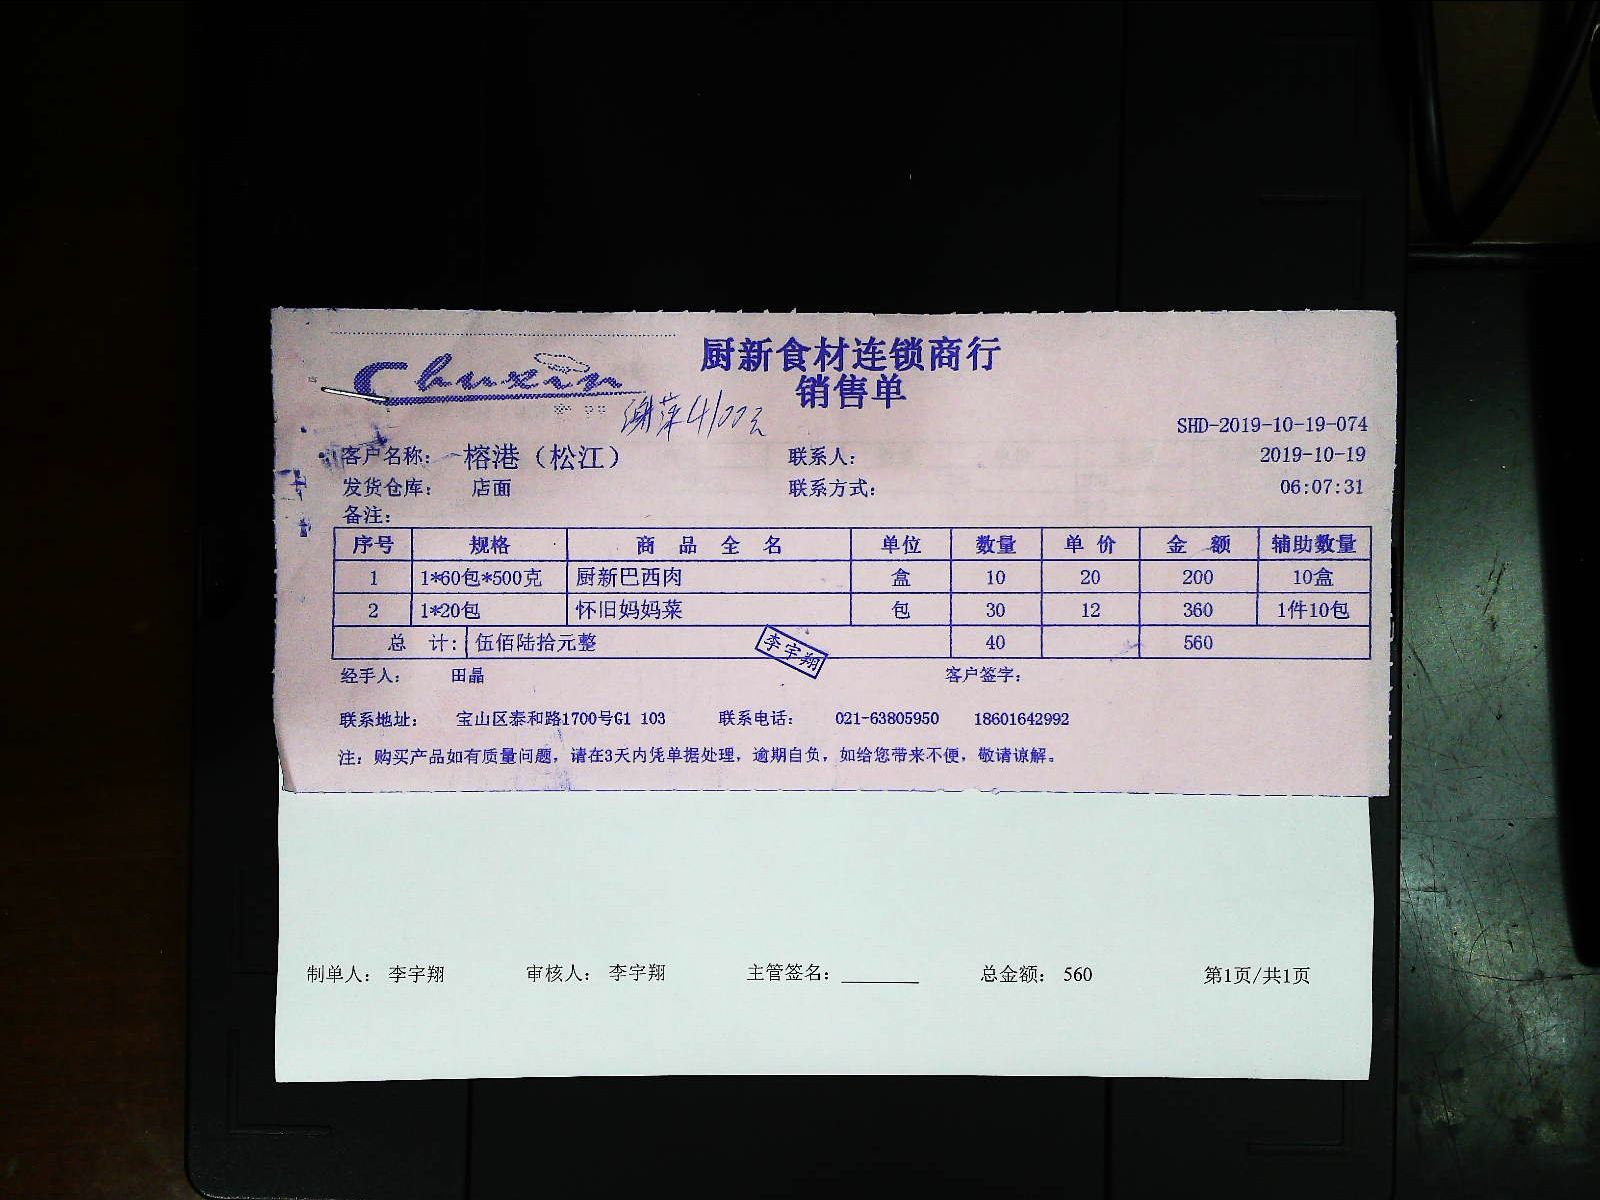 Chuxin
厨新食材连锁商行
销售单
SHD-2019-10-19-074
客户名称： 榕港（松江） 联系人： 2019-10-19
发货仓库： 店面 联系方式： 06:07:31
备注：
序号 规格 商 品 全 名 单位 数量 单 价 金 额 辅助数量
1 1*60包*500克 厨新巴西肉 盒 10 20 200 10盒
2 1*20包 怀旧妈妈菜 包 30 12 360 1件10包
总 计： 伍佰陆拾元整 40 560
李宇翔
经手人： 田晶 客户签字：
联系地址： 宝山区泰和路1700号G1 103 联系电话： 021-63805950 18601642992
注：购买产品如有质量问题，请在3天内凭单据处理，逾期自负，如给您带来不便，敬请谅解。
制单人： 李宇翔 审核人： 李宇翔 主管签名： 总金额： 560 第1页/共1页